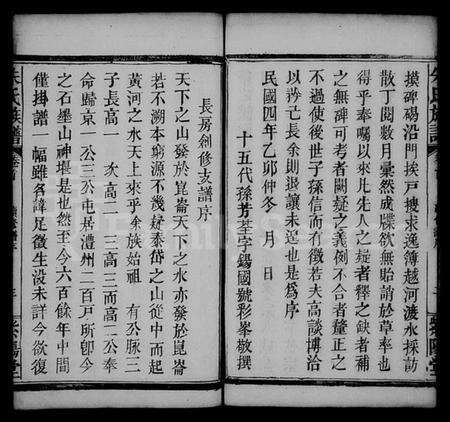 摸碑碣沿門挨戶搜求逸簿越河渡水採訪
散丁閱數月彙然成牒欲無貽誚於草率也
得乎奉囑以來凡先人之疑者釋之缺者補
之無碑可考者闕疑之義例不合者釐正之
不過使後世子孫信而有徵若夫高談博洽
以矜亡長余則退讓未遑也是為序
民國四年乙卯仲冬 月 日
十五代孫芳荃字錫國號彩峯敬撰
長房創修支譜序
天下之山發於崑崙天下之水亦發於崑崙
若不溯本窮源不幾好泰岱之山從中而起
黃河之水天上來乎余族始祖 有公脉三
子長高一 次高二 三高三而高二公奉
命歸京一公三公屯居澧州二百戶所卽今
之石墨山神堰是也然至今六百餘年中間
僅掛譜一幅雖名諱足徵生沒未詳今欲復
朱氏族譜
卷首
紫陽堂